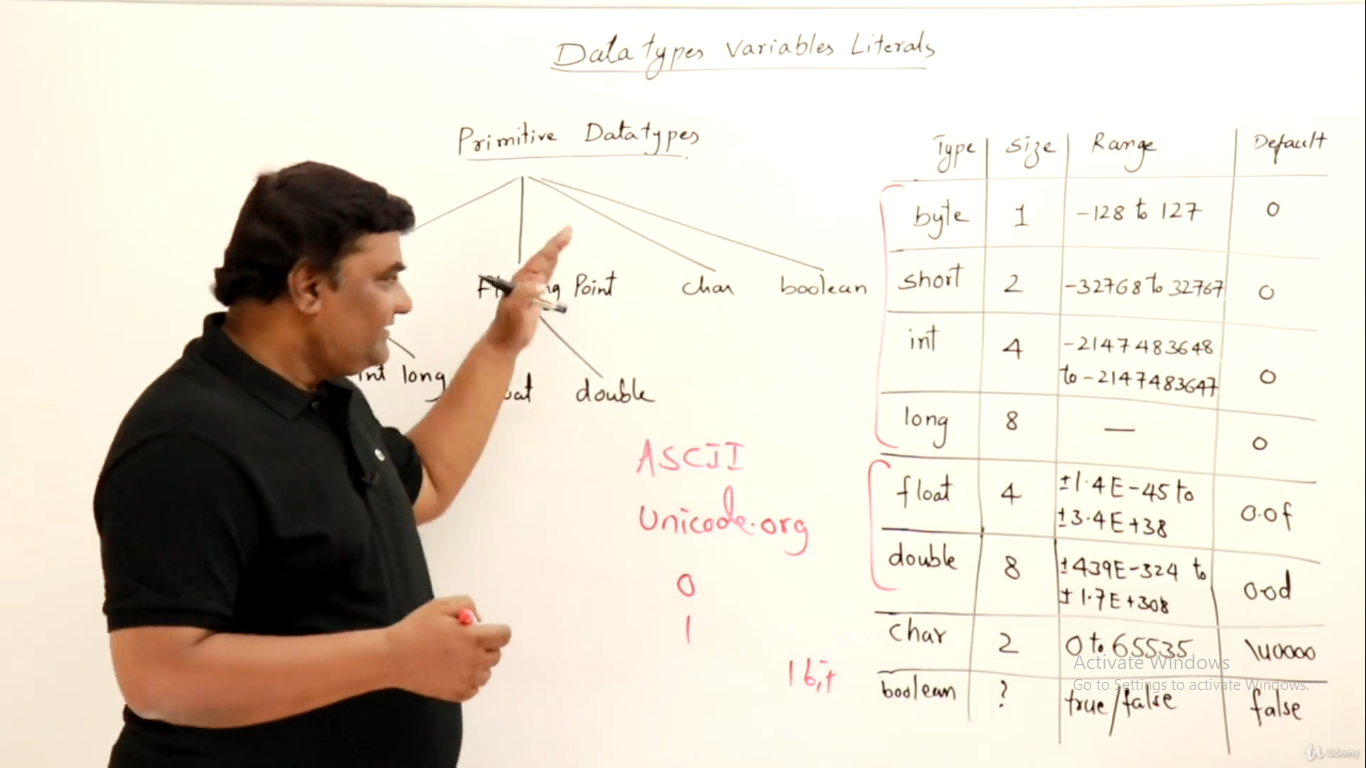 Datatypes Variables Literals
Primitive Datatypes
Point char boolean
int long double
ASCII
Unicode.org
0
1
1 bit
Type Size Range Default
byte 1 -128 to 127 0
short 2 -32768 to 32767 0
int 4 -2147483648 to -2147483647 0
long 8 — 0
float 4 ±1.4E-45 to ±3.4E+38 0.0f
double 8 ±439E-324 to ±1.7E+308 0.0d
char 2 0 to 65535 \u0000
boolean ? true/false false
Activate Windows
Go to Settings to activate Windows.
Udemy